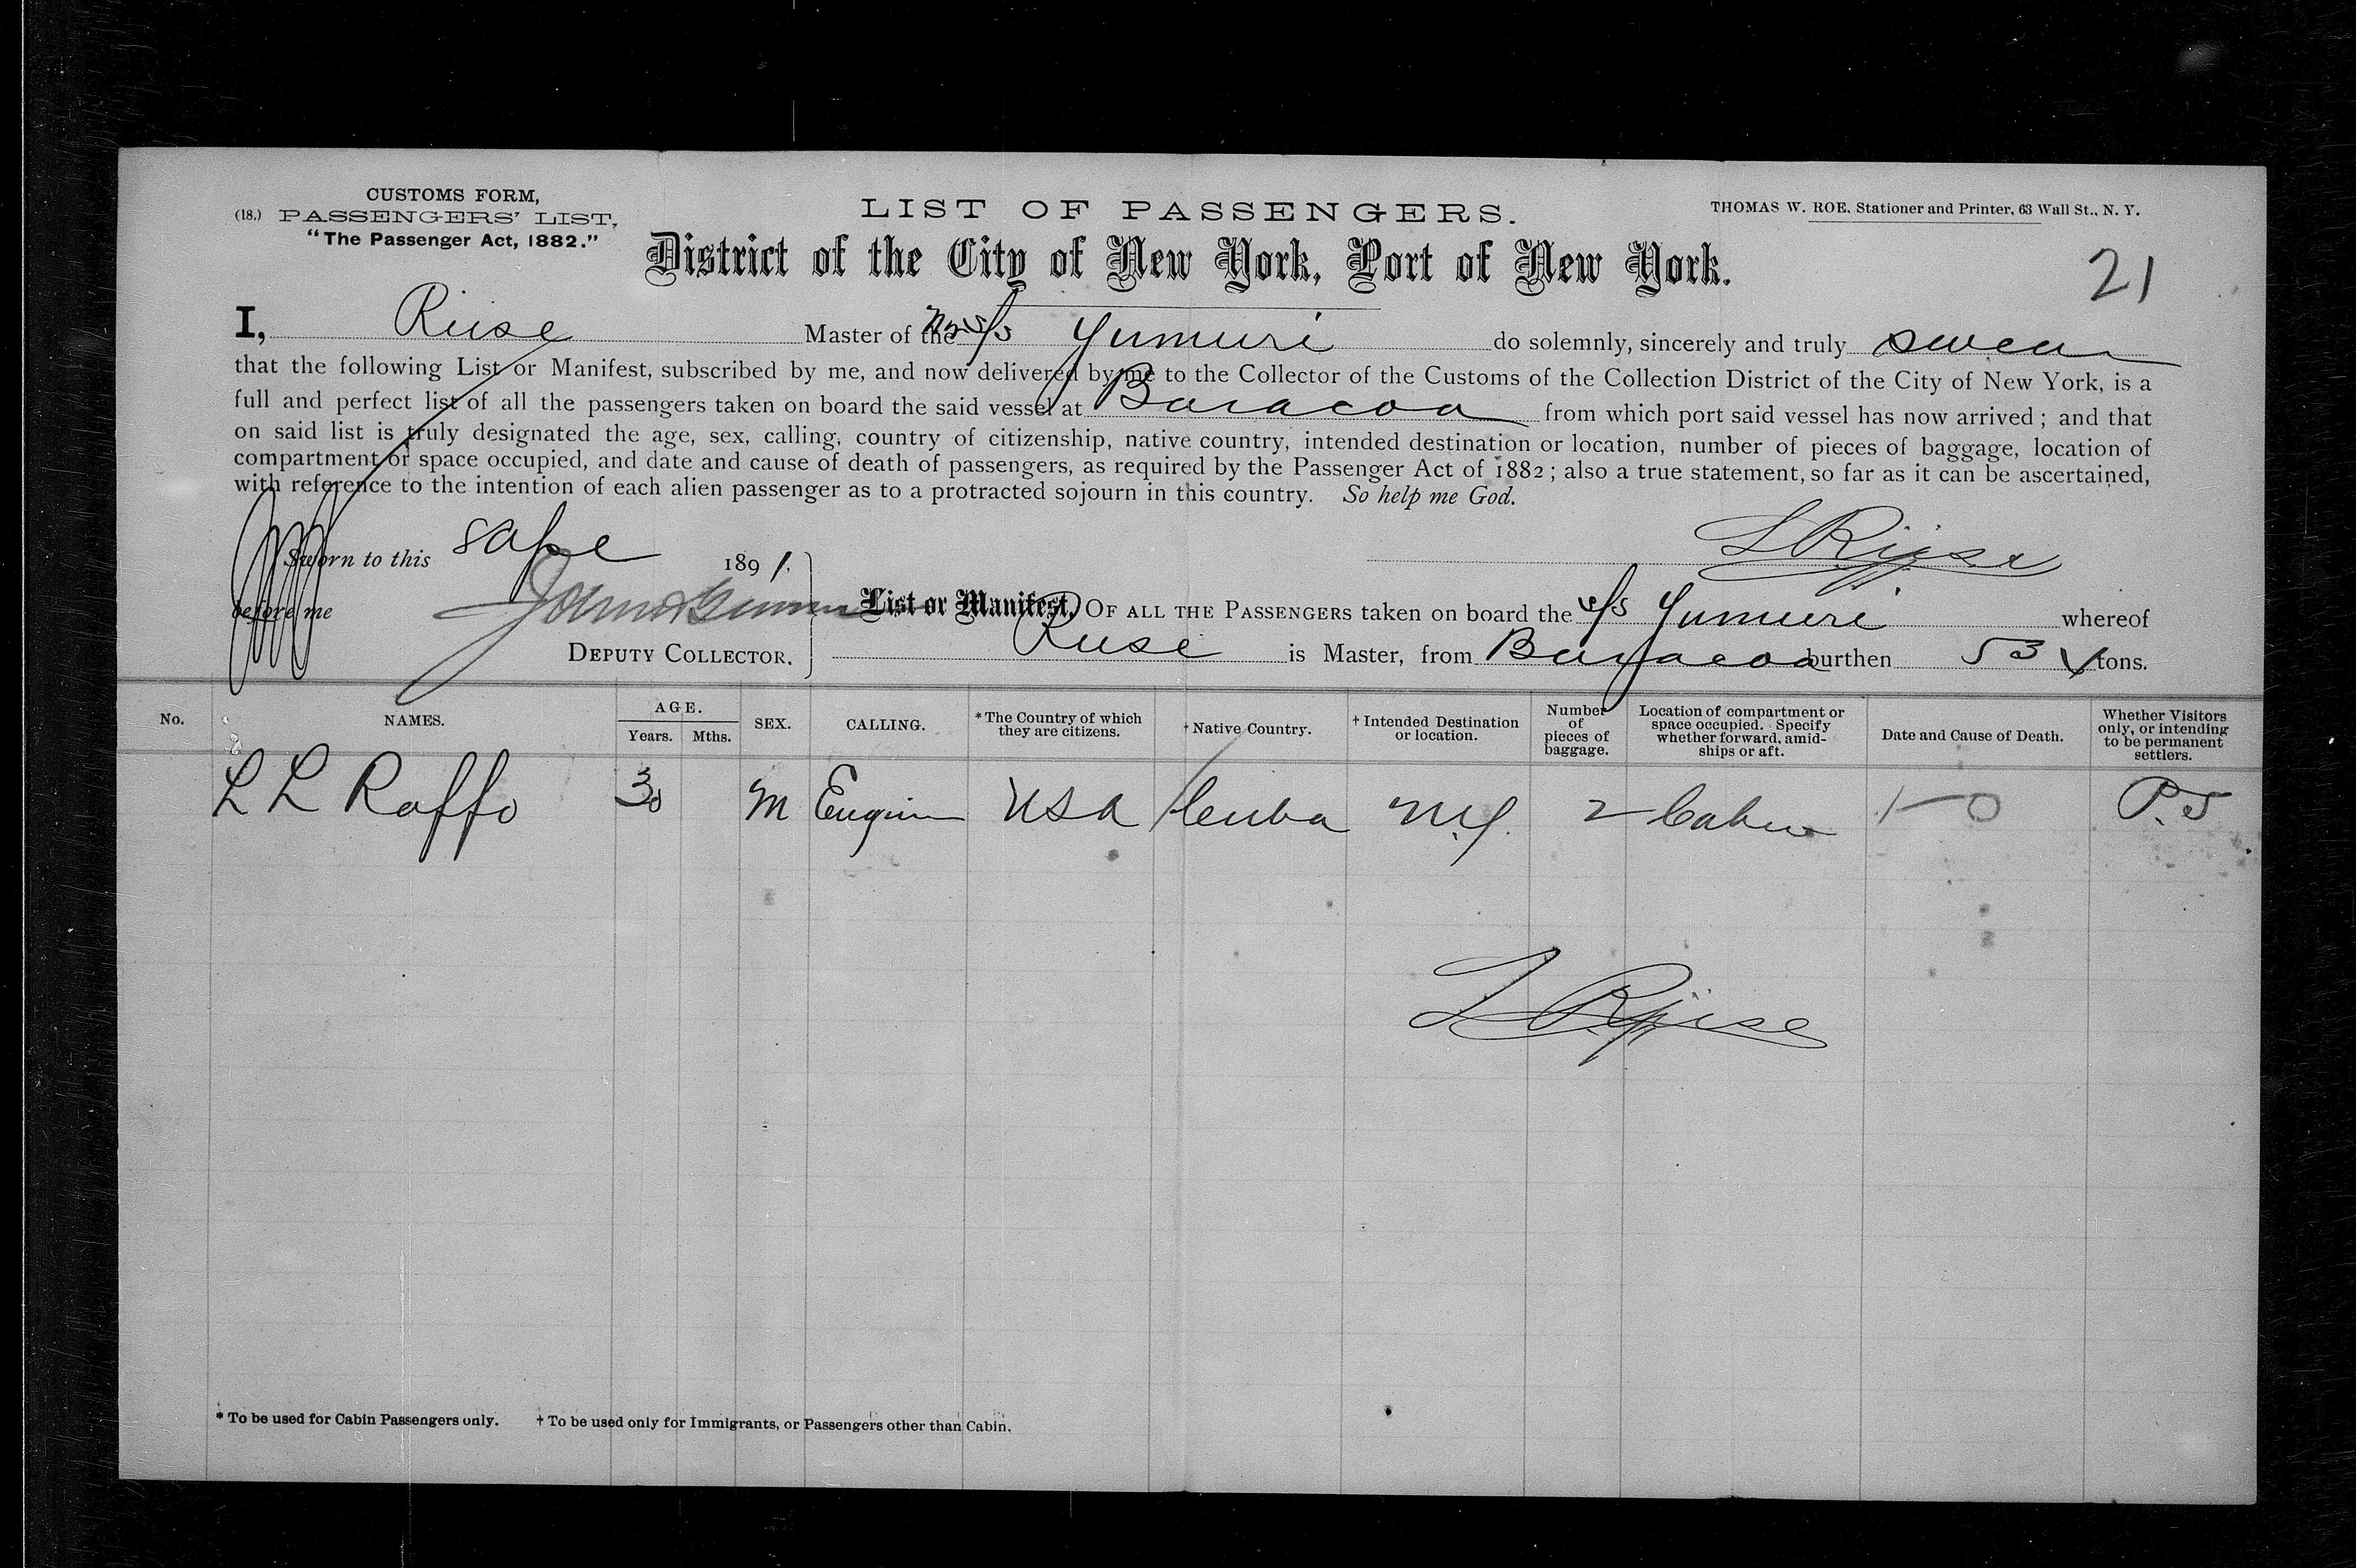 CUSTOMS FORM,
(18.) PASSENGERS' LIST,
"The Passenger Act, 1882."
LIST OF PASSENGERS.
THOMAS W. ROE, Stationer and Printer, 63 Wall St., N. Y.
District of the City of New York, Port of New York.
21
I, Riise Master of the s/s Yumuri do solemnly, sincerely and truly swear
that the following List or Manifest, subscribed by me, and now delivered by me to the Collector of the Customs of the Collection District of the City of New York, is a
full and perfect list of all the passengers taken on board the said vessel at Baracoa from which port said vessel has now arrived; and that
on said list is truly designated the age, sex, calling, country of citizenship, native country, intended destination or location, number of pieces of baggage, location of
compartment or space occupied, and date and cause of death of passengers, as required by the Passenger Act of 1882; also a true statement, so far as it can be ascertained,
with reference to the intention of each alien passenger as to a protracted sojourn in this country. So help me God.
Sworn to this 1891.
L Riise
before me
DEPUTY COLLECTOR.
List or Manifest, OF ALL THE PASSENGERS taken on board the s/s Yumuri whereof
Riise is Master, from Baracoa burthen 53 tons.
No. NAMES. AGE. Years. Mths. SEX. CALLING. *The Country of which they are citizens. †Native Country. †Intended Destination or location. Number of pieces of baggage. Location of compartment or space occupied. Specify whether forward, amidships or aft. Date and Cause of Death. Whether Visitors only, or intending to be permanent settlers.
L L Raffo 30 M Engin USA Cuba N.Y. 2 Cabin 1—0 P.S
L Riise
* To be used for Cabin Passengers only. † To be used only for Immigrants, or Passengers other than Cabin.